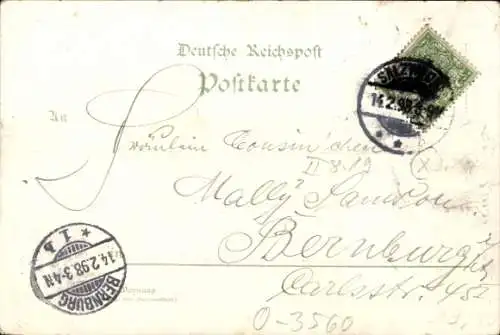 Deutsche Reichspost
Postkarte
14.2.98
An
Fräulein Cousin'chen
II 8.19
Mally Samson
Bernburg
Carlsstr. 45
* 1. b
14.2.98.3-4N
BERNBURG
O-3560